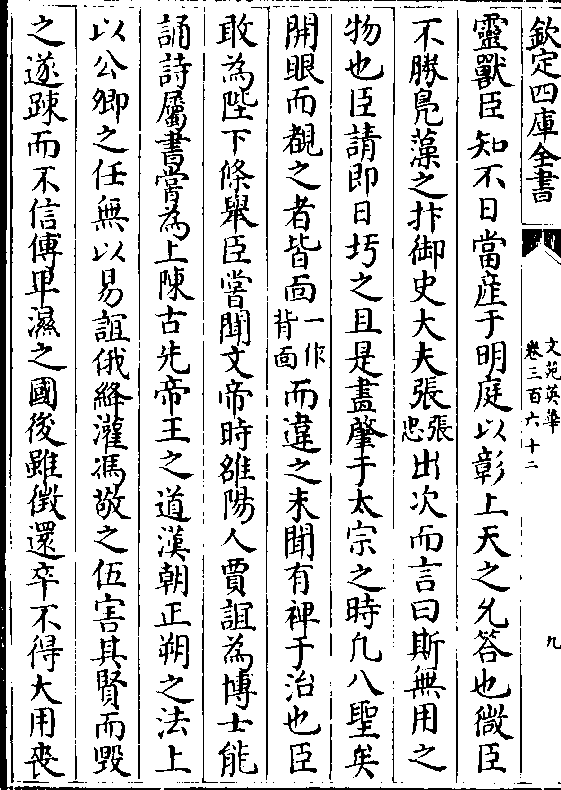 欽定四庫全書
文苑英華
卷三百六十二
九
靈獸臣知不日當産于明庭以彰上天之允答也微臣
不勝鳧藻之抃御史大夫張張忠出次而言曰斯無用之
物也臣請即日圬之且是畫肇于太宗之時凡八聖矣
開眼而覩之者皆面一作背面而違之未聞有裨于治也臣
敢為陛下條舉臣嘗聞文帝時雒陽人賈誼為博士能
誦詩屬書嘗為上陳古先帝王之道漢朝正朔之法上
以公卿之任無以易誼俄絳灌馮敬之伍害其賢而毀
之遂踈而不信傅卑濕之國後雖徴還卒不得大用喪